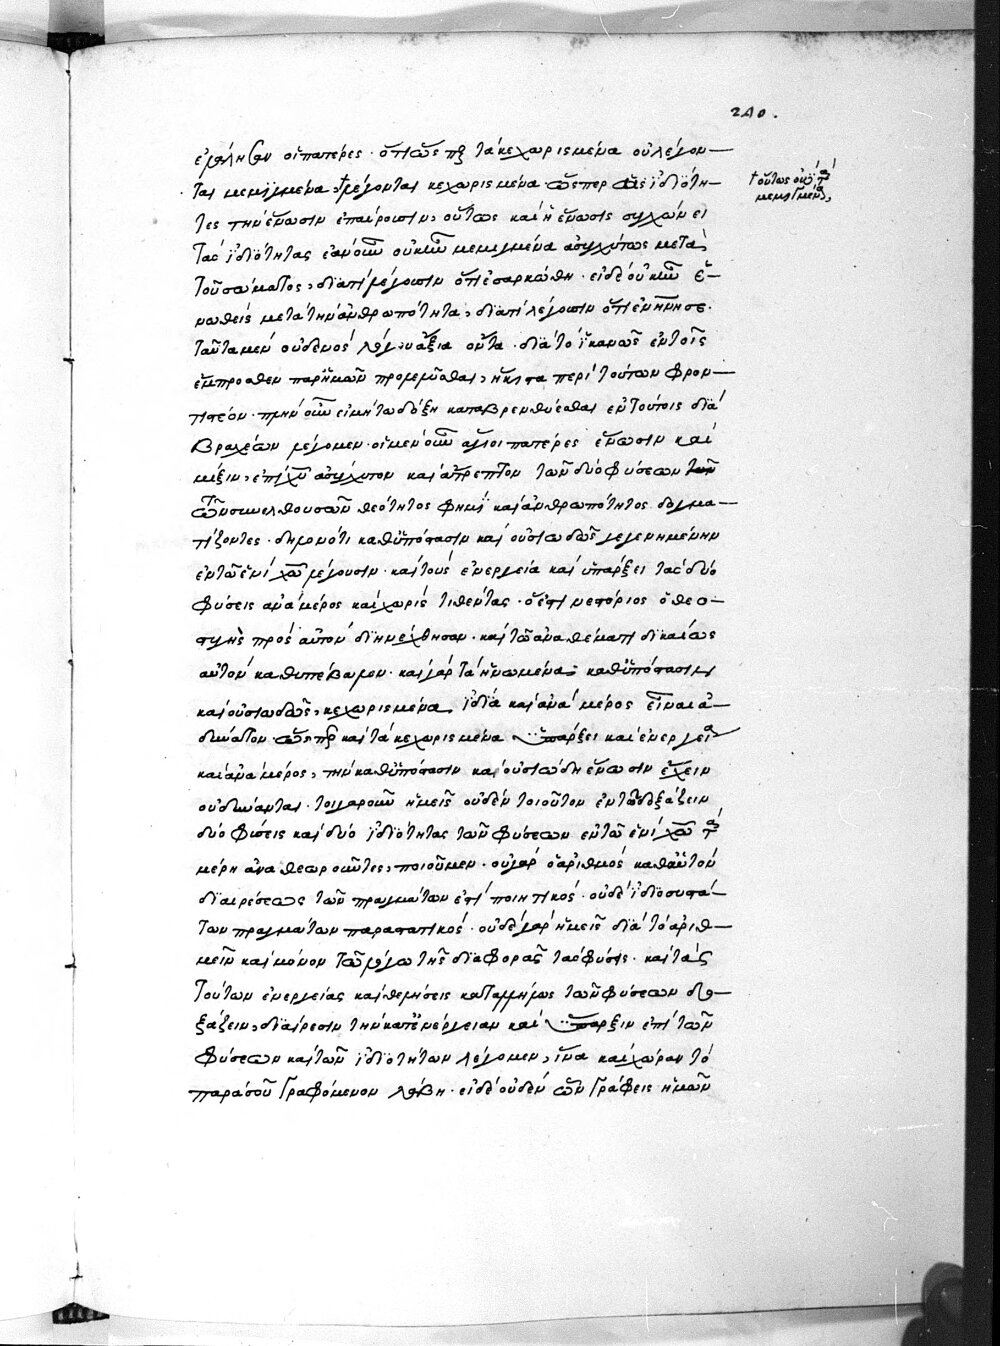 240.
οἱ πατέρες · ὅτι ὥσπερ τὰ κεχωρισμένα οὐ λέγον-
ται μεμιγμένα, † λέγονται κεχωρισμένα ὥσπερ ἰδιότη-
† οὕτως οὐδὲ τὰ
μεμιγμένα,
τες τὴν ἕνωσιν οὕτως καὶ ἡ ἕνωσις συγχωνεύει
τὰς ἰδιότητας ἐὰν οὖν οὐκ μεμιγμένα ἀσυγχύτως μετὰ
τοῦ σώματος, διατί λέγουσιν ὅτι ἐσαρκώθη · εἰ δὲ οὐκ ἦν ἑ-
νωθεὶς μετὰ τὴν ἀνθρωπότητα, διατί λέγουσιν ὅτι
ταῦτα μὲν οὐδενὸς λόγου ἄξια ὄντα · διὰ τὸ ἱκανῶς ἐν τοῖς
ἔμπροσθεν παρ' ἡμῶν περὶ τούτων φρον-
τιστέον · πλὴν οὖν εἰ μὴ τῷ δόξῃ καταβρενθύεσθαι ἐν τούτοις διὰ
βραχέων λέγομεν · οἱ μὲν οὖν ἅγιοι πατέρες ἕνωσιν καὶ
μίξιν, ἐπὶ χῦ ἀσύγχυτον καὶ ἄτρεπτον τῶν δύο φύσεων
τῶν συνελθουσῶν θεότητος φημὶ καὶ ἀνθρωπότητος δογμα-
τίζοντες · δηλονότι καθ' ὑπόστασιν καὶ οὐσιωδῶς γεγενημένην
ἐν τῷ ἑνὶ χῶ λέγουσιν · καὶ τοὺς ἐνεργεία καὶ ὑπάρξει τὰς δύο
φύσεις ἀνὰ μέρος καὶ χωρὶς τιθέντας · ὅ ἐστι νεστόριος ὁ θεο-
στυγὴς πρὸς αὐτὸν διηνέχθησαν · καὶ τῶ ἀναθέματι δικαίως
αὐτὸν καθυπέβαλον · καὶ γὰρ τὰ ἡνωμένα, καθ' ὑπόστασιν
καὶ οὐσιωδῶς, κεχωρισμένα, ἰδία καὶ ἀνὰ μέρος εἶναι ἀ-
δύνατον · ὥσπερ καὶ τὰ κεχωρισμένα ὑπάρξει καὶ ἐνεργεία
καὶ ἀνὰ μέρος, τὴν καθ' ὑπόστασιν καὶ οὐσιώδη ἕνωσιν ἔχειν
οὐ δύνανται · τοιγαροῦν ἡμεῖς οὐδὲν τοιοῦτον ἐν τῶ δοξάζειν
δύο φύσεις καὶ δύο ἰδιότητας τῶν φύσεων ἐν τῶ ἑνὶ χῶ τὰ
μέρη ἀναθεωροῦντες, ποιοῦμεν · οὐ γὰρ ὁ ἀριθμὸς καθ' αὑτὸν
διαιρέσεως τῶν πραγμάτων ἐστὶ ποιητικός · οὐδὲ ἰδιοσυστά-
των πραγμάτων παραστατικός · οὐδὲ γὰρ ἡμεῖς διὰ τὸ ἀριθ-
μεῖν καὶ μόνον τῶ λόγω τῆς διαφορᾶς τὰς φύσεις · καὶ τὰς
τούτων ἐνεργείας καὶ θελήσεις καταλλήλως τῶν φύσεων δο-
ξάζειν, διαίρεσιν τὴν κατ' ἐνέργειαν καὶ ὕπαρξιν ἐπὶ τῶν
φύσεων καὶ τῶν ἰδιοτήτων λέγομεν, ἵνα καὶ χώραν τὸ
παρὰ σοῦ γραφόμενον λάβη · εἰ δὲ οὐδὲν ὧν γράφεις ἡμῶν